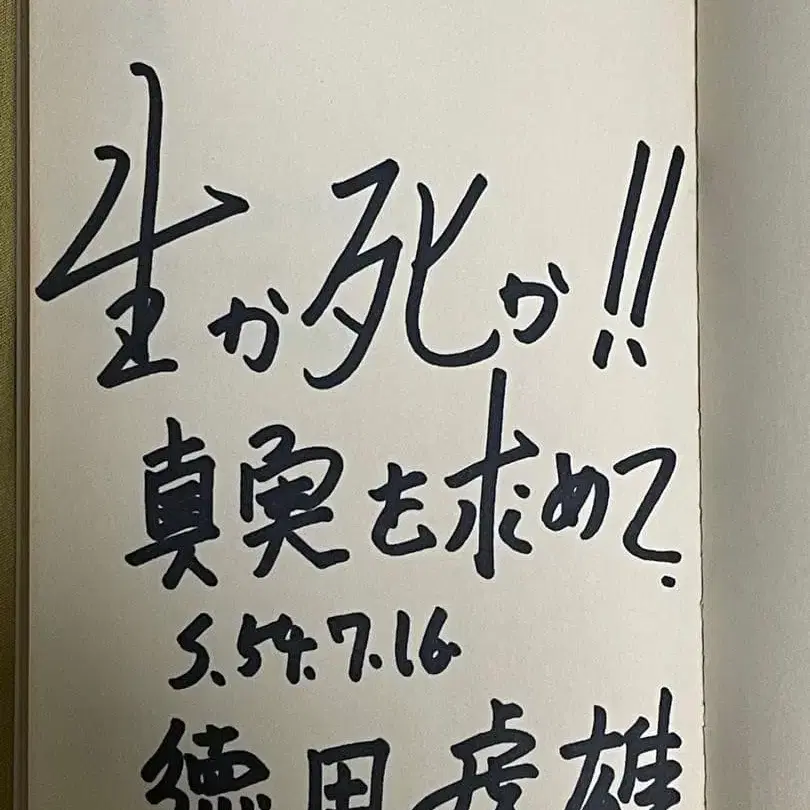 生か死か!!
真実を求めて.
S.54.7.16.
徳田虎雄